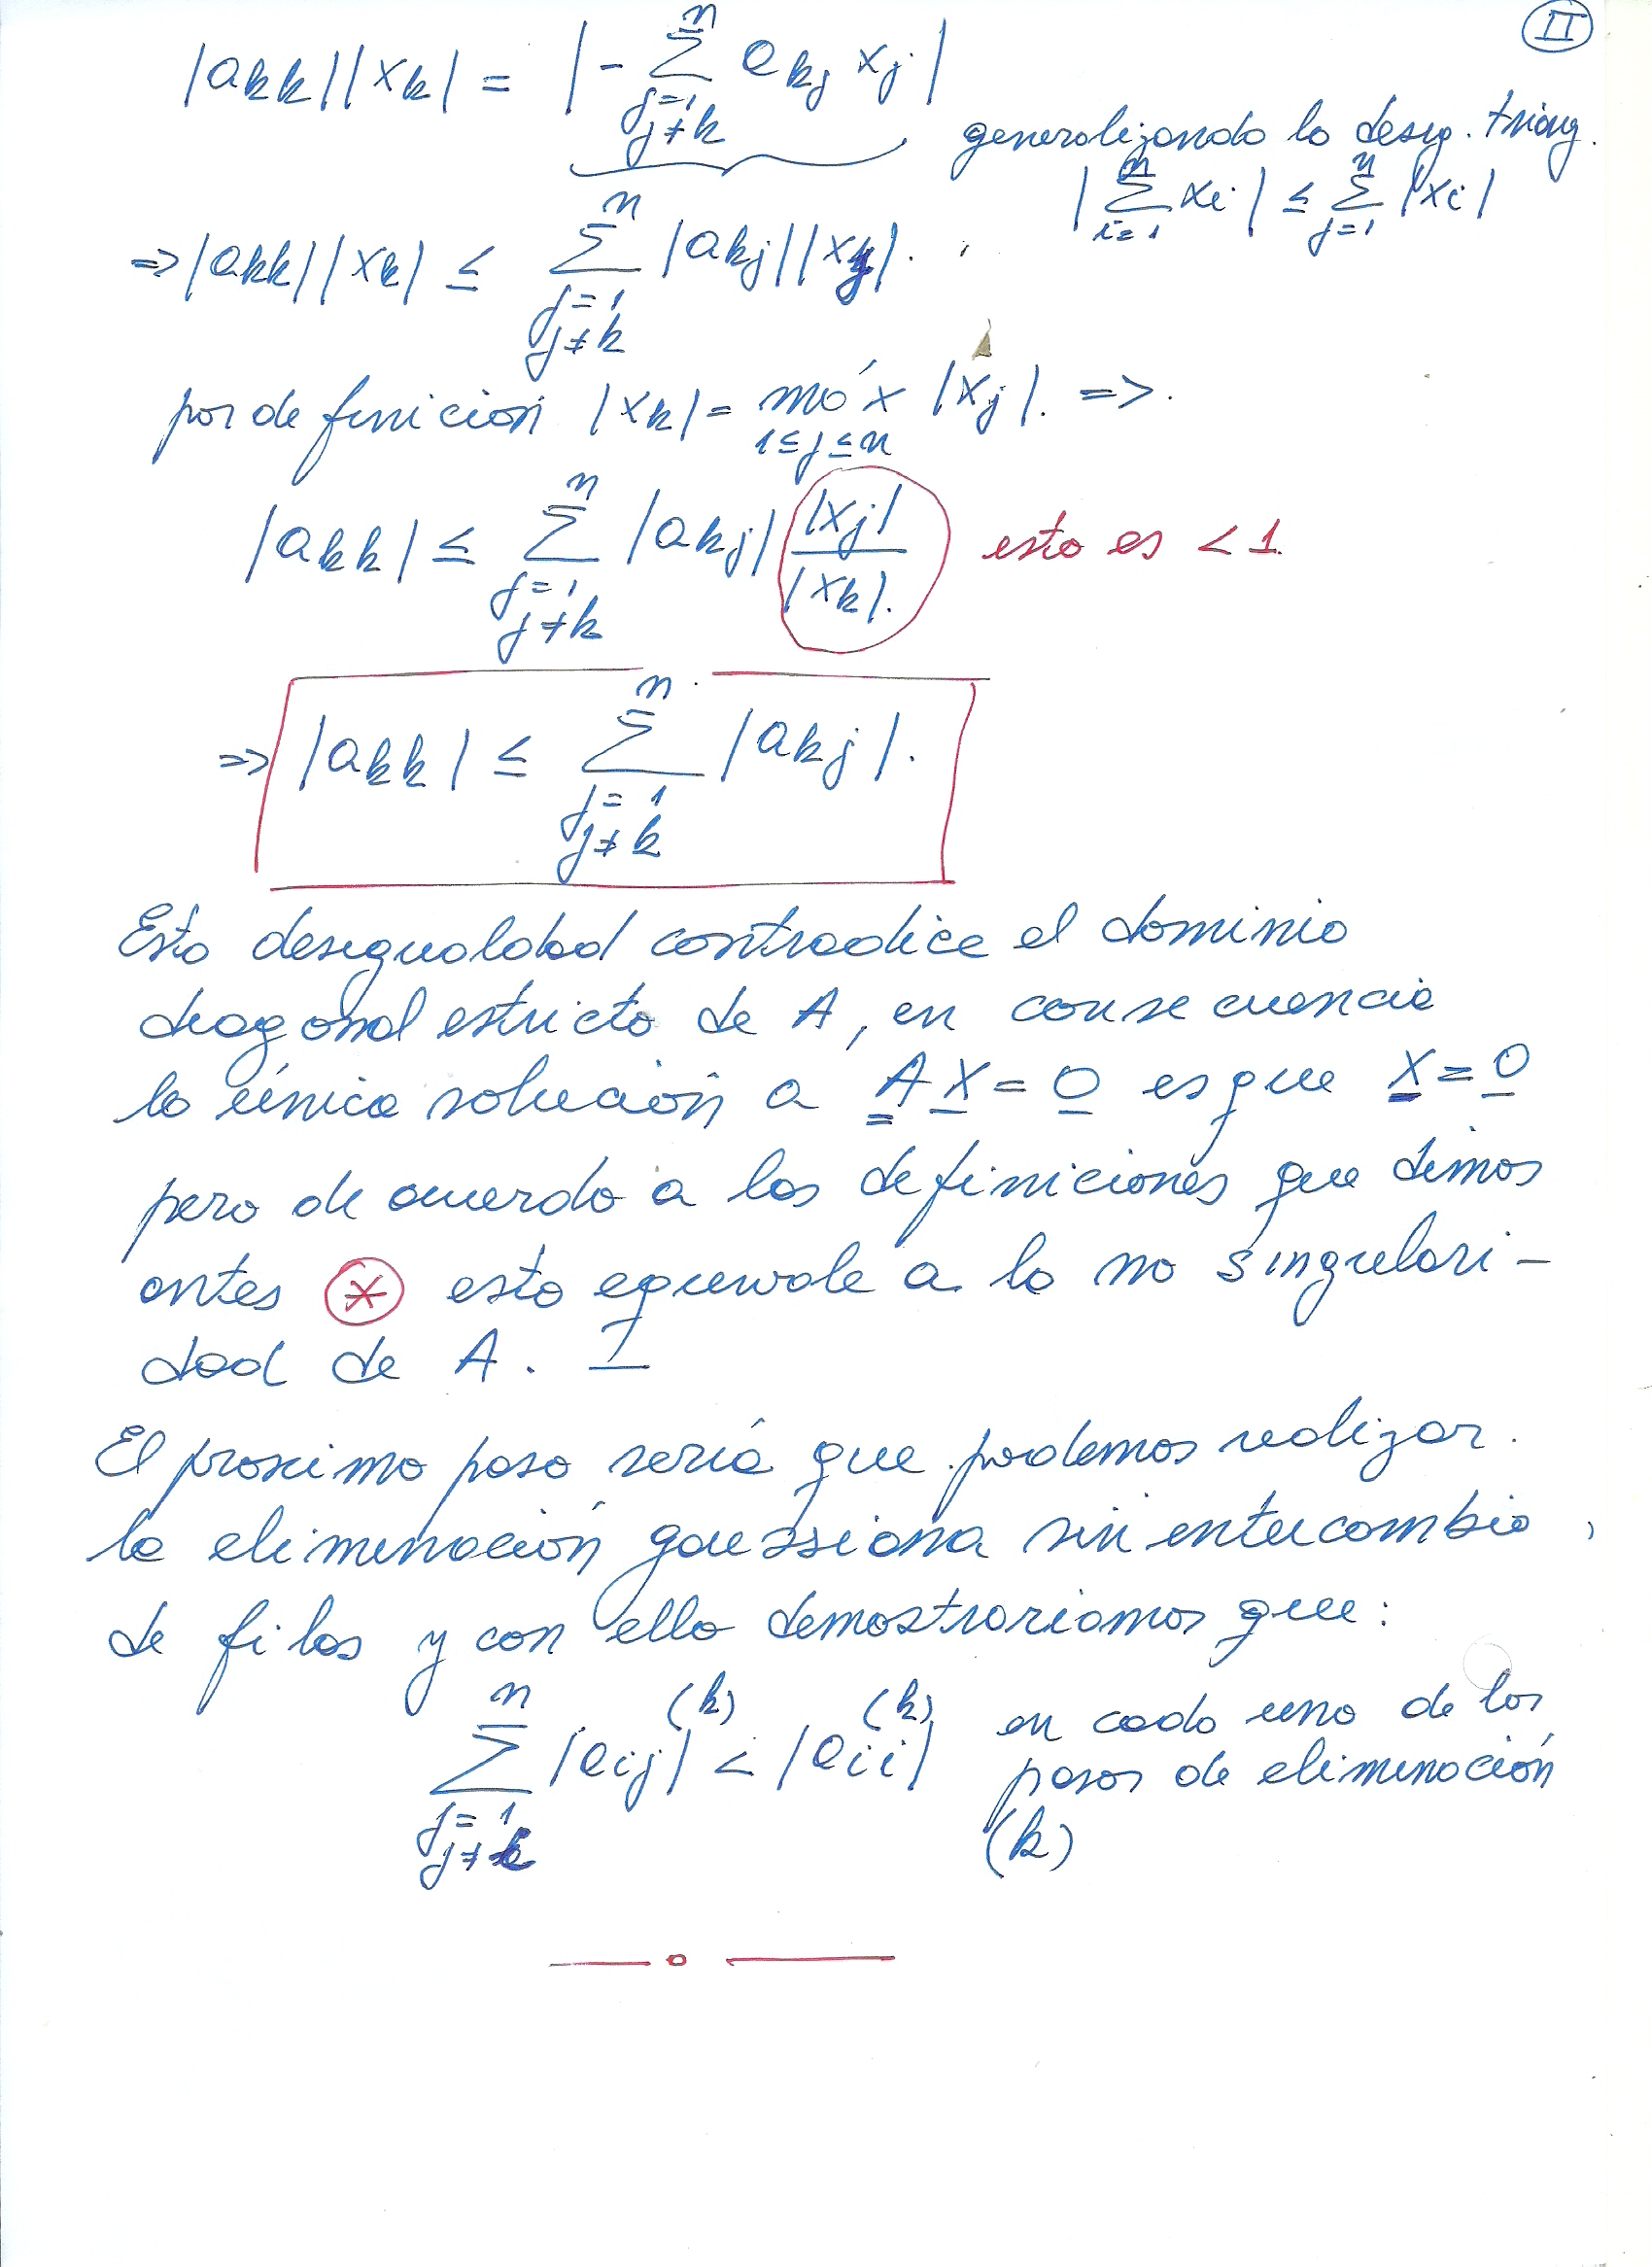 II
|akk||xk| = |- Σ(j=1, j≠k)^n akj xj|
generalizando la desig. triang.
|Σ(i=1)^n xi| ≤ Σ(j=1)^n |xi|
=> |akk||xk| ≤ Σ(j=1, j≠k)^n |akj||xj|.
por definición |xk| = máx(1≤j≤n) |xj|. =>.
|akk| ≤ Σ(j=1, j≠k)^n |akj| |xj|/|xk|. esto es < 1.
=> |akk| ≤ Σ(j=1, j≠k)^n |akj|.
Esta desigualdad contradice el dominio
diagonal estricto de A, en consecuencia
la única solución a A X = 0 es que X = 0
pero de acuerdo a las definiciones que dimos
antes * esto equivale a la no singulari-
dad de A.
El proximo paso sería que podemos realizar
la eliminación gaussiana sin intercambio
de filas y con ello demostrariamos que:
Σ(j=1, j≠i)^n |aij|^(k) < |aii|^(k) en cada uno de los
pasos de eliminación
(k)